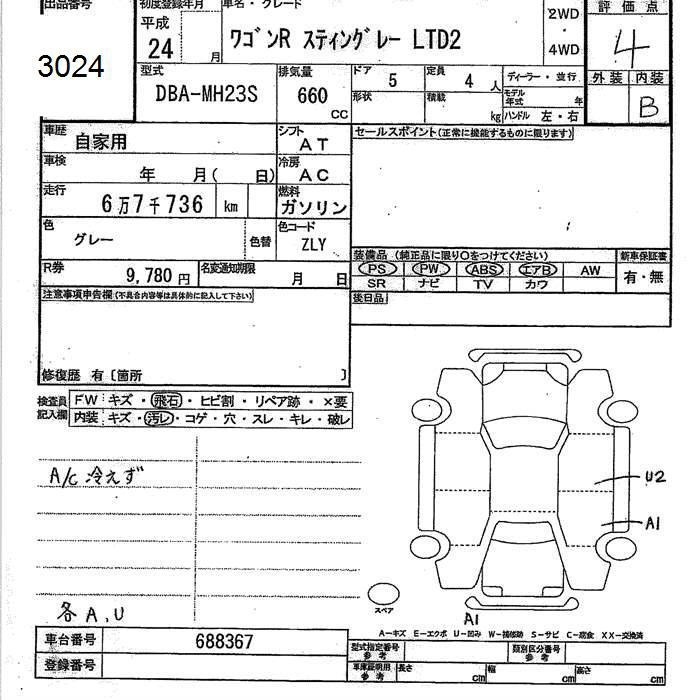 出品番号
3024
初度登録年月
平成
24 月
車名・グレード
ワゴンR スティングレー LTD2
2WD
4WD
評価点
4
外装 内装
B
型式
DBA-MH23S
排気量
660
CC
ドア 5
定員 4 人
形状
積載 kg
ディーラー・並行
モデル年式 年
ハンドル 左・右
車歴
自家用
シフト
AT
車検
年 月( 日)
冷房
AC
走行
6万7千736 km
燃料
ガソリン
色
グレー
色替
色コード
ZLY
R券
9,780円
名変通知期限
月 日
セールスポイント(正常に機能するものに限ります)
装備品 (純正品に限り○をつけてください)
PS PW ABS エアB AW
SR ナビ TV カワ
新車保証書
有・無
後日品
注意事項申告欄(不具合内容等は具体的に記入して下さい)
修復歴 有〔箇所 〕
検査員記入欄
FW キズ・飛石・ヒビ割・リペア跡・×要
内装 キズ・汚レ・コゲ・穴・スレ・キレ・破レ
A/C 冷えず
各A,U
U2
A1
A1
スペア
A-キズ E-エクボ U-凹み W-補修跡 S-サビ C-腐食 XX-交換済
車台番号 688367
登録番号
型式指定番号
参考
類別区分番号
参考
車庫証明用
参考
長さ cm 幅 cm 高さ cm